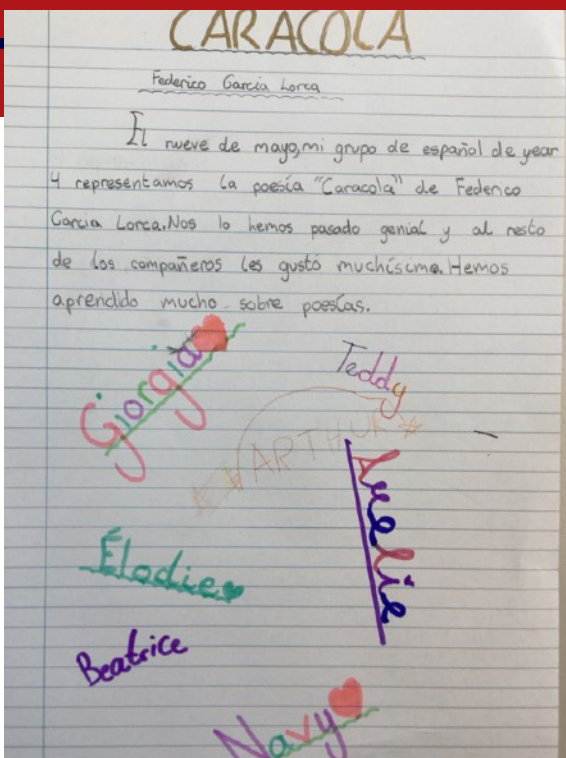 CARACOLA
Federico Garcia Lorca
El nueve de mayo, mi grupo de español de year
4 representamos la poesía "Caracola" de Federico
Garcia Lorca. Nos lo hemos pasado genial y al resto
de los compañeros les gustó muchísimo. Hemos
aprendido mucho sobre poesías.
Giorgia
Teddy
ARTHUR
Amelie
Élodie
Beatrice
Navy